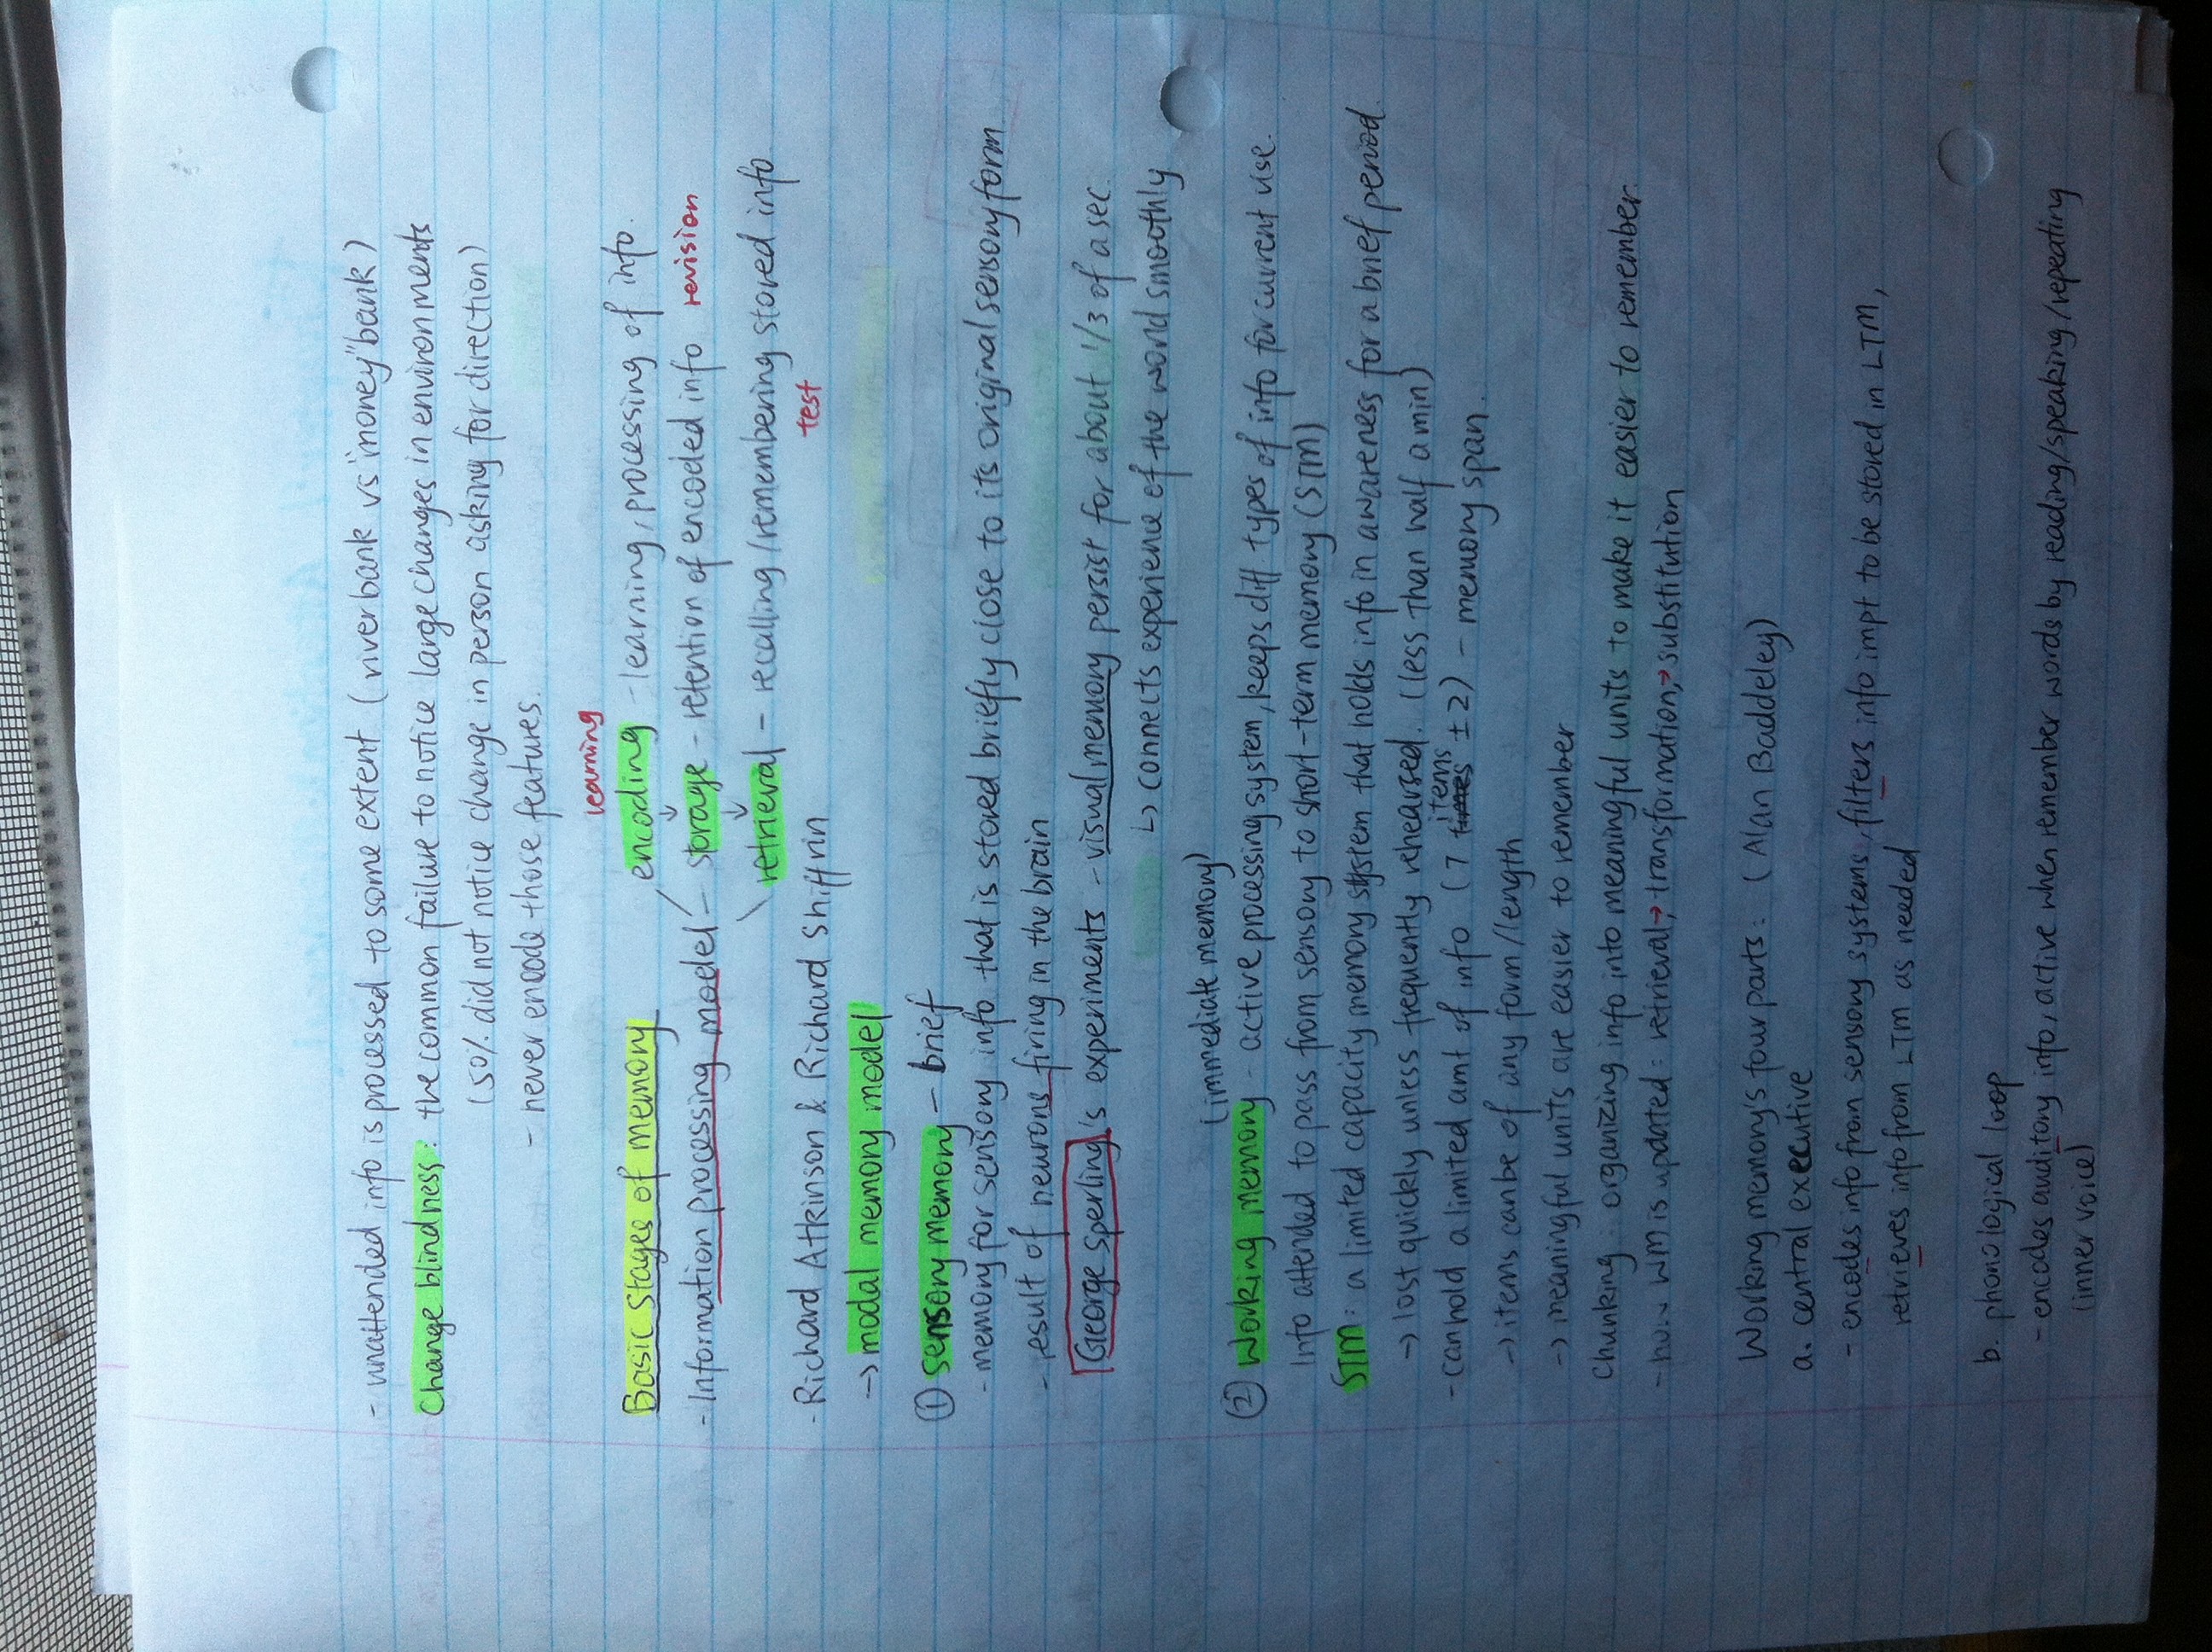 - unattended info is processed to some extent (riverbank vs "money" bank)
Change blindness: the common failure to notice large changes in environments
(50% did not notice change in person asking for direction)
- never encode those features.
learning
Basic stages of memory encoding - learning, processing of info.
- Information processing model - storage - retention of encoded info revision
retrieval - recalling/remembering stored info
test
- Richard Atkinson & Richard Shiffrin
→ modal memory model
① sensory memory - brief
- memory for sensory info that is stored briefly close to its original sensory form
- result of neurons firing in the brain
George Sperling's experiments - visual memory persist for about 1/3 of a sec.
↳ connects experience of the world smoothly
(immediate memory)
② working memory - active processing system, keeps diff types of info for current use.
Info attended to pass from sensory to short-term memory (STM)
STM: a limited capacity memory system that holds info in awareness for a brief period.
→ lost quickly unless frequently rehearsed. (less than half a min)
- can hold a limited amt of info (7 items ± 2) - memory span.
→ items can be of any form/length
→ meaningful units are easier to remember
Chunking: organizing info into meaningful units to make it easier to remember.
- how WM is updated: retrieval → transformation → substitution
Working memory's four parts: (Alan Baddeley)
a. central executive
- encodes info from sensory systems, filters info impt to be stored in LTM,
retrieves info from LTM as needed
b. phonological loop
- encodes auditory info, active when remember words by reading/speaking/repeating
(inner voice)